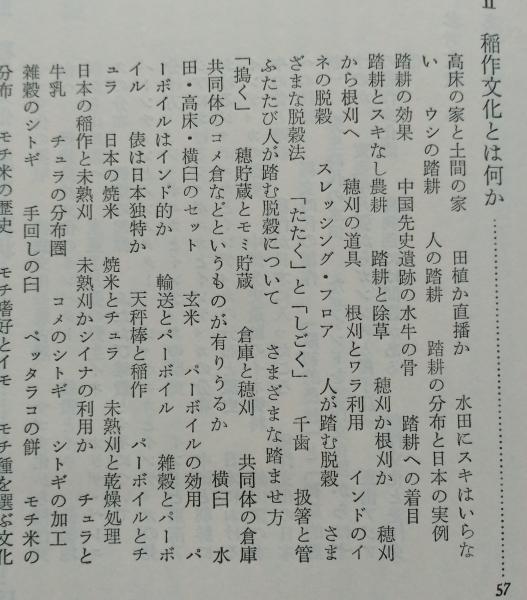 II 稲作文化とは何か……………………57
高床の家と土間の家　田植か直播か　水田にスキはいらな
い　ウシの踏耕　人の踏耕　踏耕の分布と日本の実例
踏耕の効果　中国先史遺跡の水牛の骨　踏耕への着目
踏耕とスキなし農耕　踏耕と除草　穂刈か根刈か　穂刈
から根刈へ　穂刈の道具　根刈とワラ利用　インドのイ
ネの脱穀　スレッシング・フロア　人が踏む脱穀　さま
ざまな脱穀法　「たたく」と「しごく」　千歯　扱箸と管
ふたたび人が踏む脱穀について　さまざまな踏ませ方
「搗く」　穂貯蔵とモミ貯蔵　倉庫と穂刈　共同体の倉庫
共同体のコメ倉などというものが有りうるか　横臼　水
田・高床・横臼のセット　玄米　パーボイルの効用　パ
ーボイルはインド的か　輸送とパーボイル　雑穀とパーボ
イル　俵は日本独特か　天秤棒と稲作　パーボイルとチ
ュラ　日本の焼米　焼米とチュラ　未熟刈と乾燥処理
日本の稲作と未熟刈　未熟刈かシイナの利用か　チュラと
牛乳　チュラの分布圏　コメのシトギ　シトギの加工
雑穀のシトギ　手回しの臼　ベッタラコの餅　モチ米の
分布　モチ米の歴史　モチ嗜好とイモ　モチ種を選ぶ文化